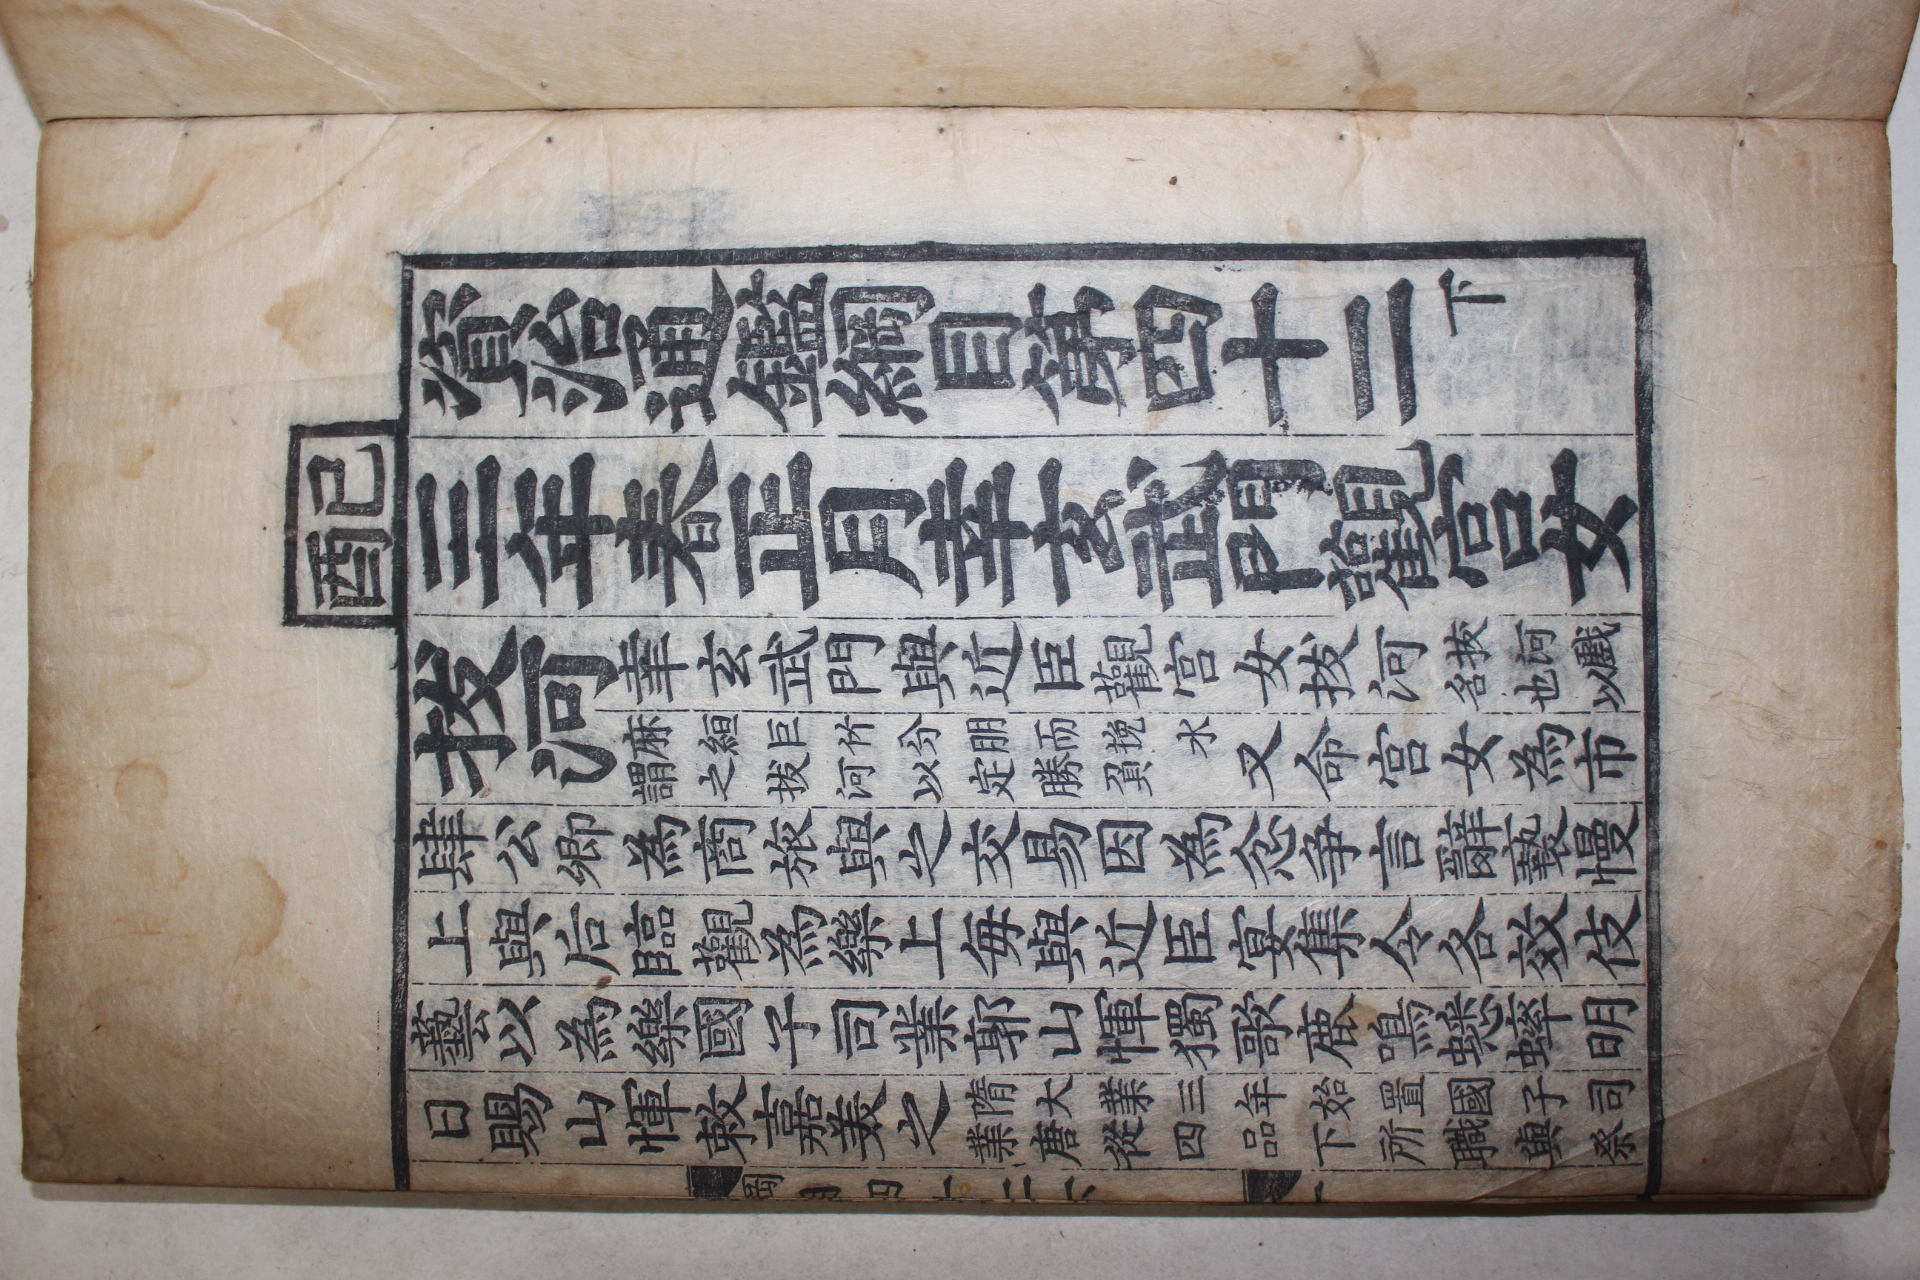 己酉
資治通鑑綱目第四十二下
三年春正月幸玄武門觀宮女
拔河幸玄武門與近臣觀宮女拔河拔河戲名也以
麻絙巨竹分朋而挽水謂之拔河以定勝負又命宮女為市
肆公卿為商旅與之交易因為忿争言辭褻慢
上與后臨觀為樂上每與近臣宴集令各效伎
藝以為樂國子司業郭山惲獨歌鹿鳴蟋蟀明
日賜山惲敕嘉美之隋大業三年始置國子司業唐從四品下所職與祭
綱目四十二下 一